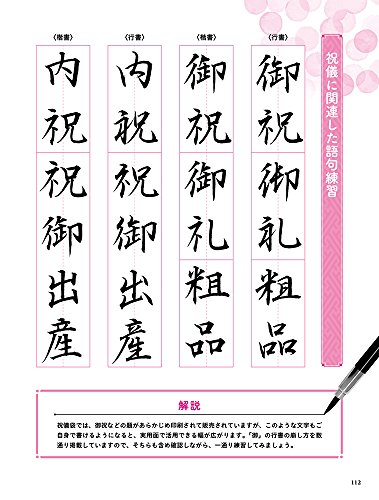 祝儀に関連した語句練習
〈行書〉
御祝
御礼
粗品
〈楷書〉
御祝
御礼
粗品
〈行書〉
内祝
祝御出産
〈楷書〉
内祝
祝御出産
解説
祝儀袋では、御祝などの題があらかじめ印刷されて販売されていますが、このような文字もご
自身で書けるようになると、実用面で活用できる幅が広がります。「御」の行書の崩し方を数
通り掲載していますので、そちらも含め確認しながら、一通り練習してみましょう。
112